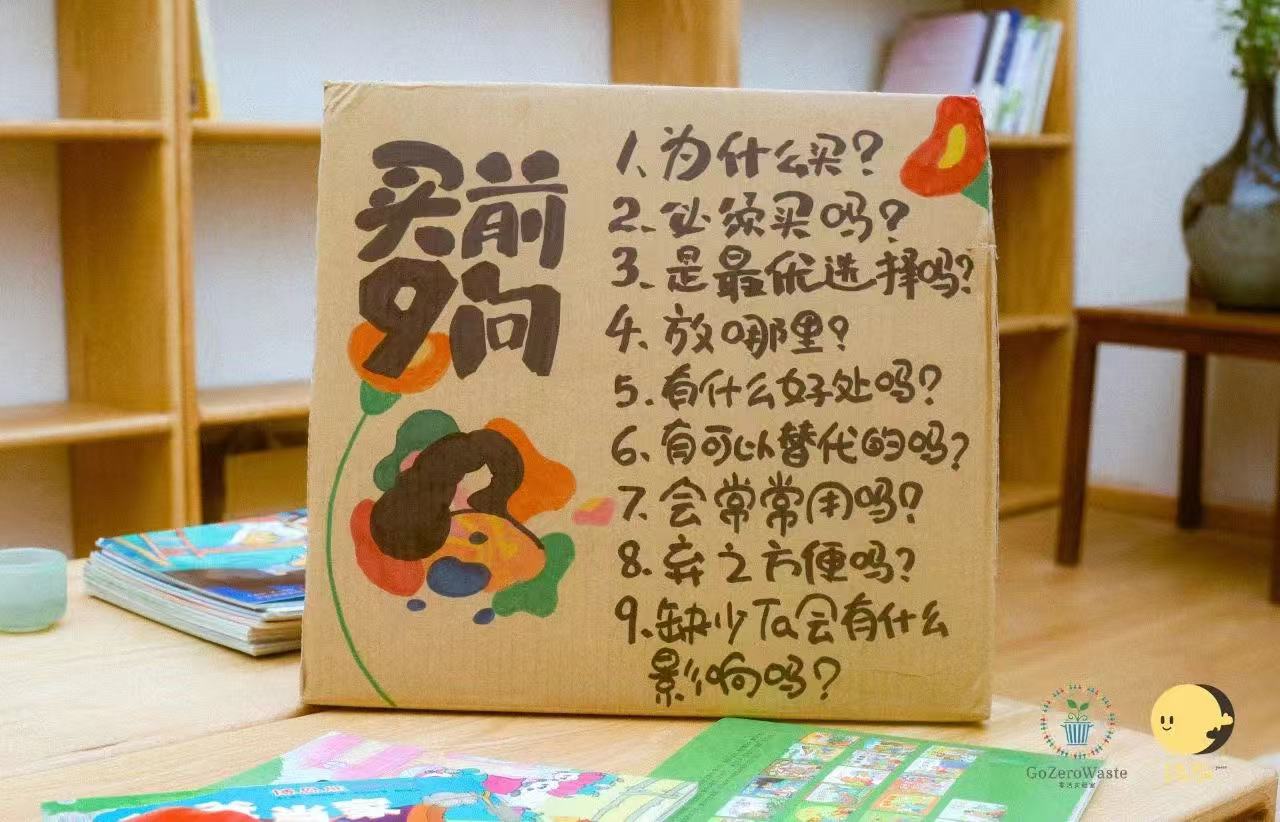 买前
9问
1.为什么买?
2.必须买吗?
3.是最优选择吗?
4.放哪里?
5.有什么好处吗?
6.有可以替代的吗?
7.会常常用吗?
8.弃之方便吗?
9.缺少Ta会有什么
影响吗?
GoZeroWaste
零活实验室